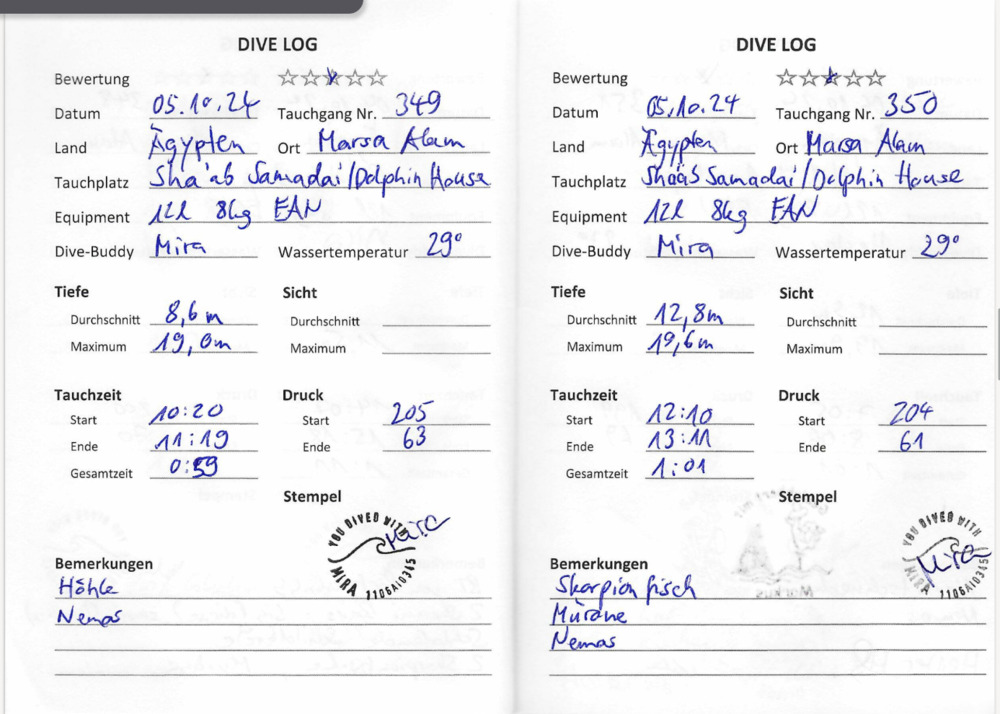 DIVE LOG
Bewertung ☆☆☆☆☆
Datum 05.10.24 Tauchgang Nr. 349
Land Ägypten Ort Marsa Alam
Tauchplatz Sha'ab Samadai/Dolphin House
Equipment 12l 8kg EAN
Dive-Buddy Mira Wassertemperatur 29°
Tiefe Sicht
Durchschnitt 8,6m Durchschnitt
Maximum 19,0m Maximum
Tauchzeit Druck
Start 10:20 Start 205
Ende 11:19 Ende 63
Gesamtzeit 0:59
Stempel
YOU DIVED WITH
MIRA 1106A10315
Mira
Bemerkungen
Höhle
Nemos
DIVE LOG
Bewertung ☆☆☆☆☆
Datum 05.10.24 Tauchgang Nr. 350
Land Ägypten Ort Marsa Alam
Tauchplatz Shaab Samadai/Dolphin House
Equipment 12l 8kg EAN
Dive-Buddy Mira Wassertemperatur 29°
Tiefe Sicht
Durchschnitt 12,8m Durchschnitt
Maximum 19,6m Maximum
Tauchzeit Druck
Start 12:10 Start 204
Ende 13:11 Ende 61
Gesamtzeit 1:01
Stempel
YOU DIVED WITH
MIRA 1106A10315
Mira
Bemerkungen
Skorpionfisch
Muräne
Nemos